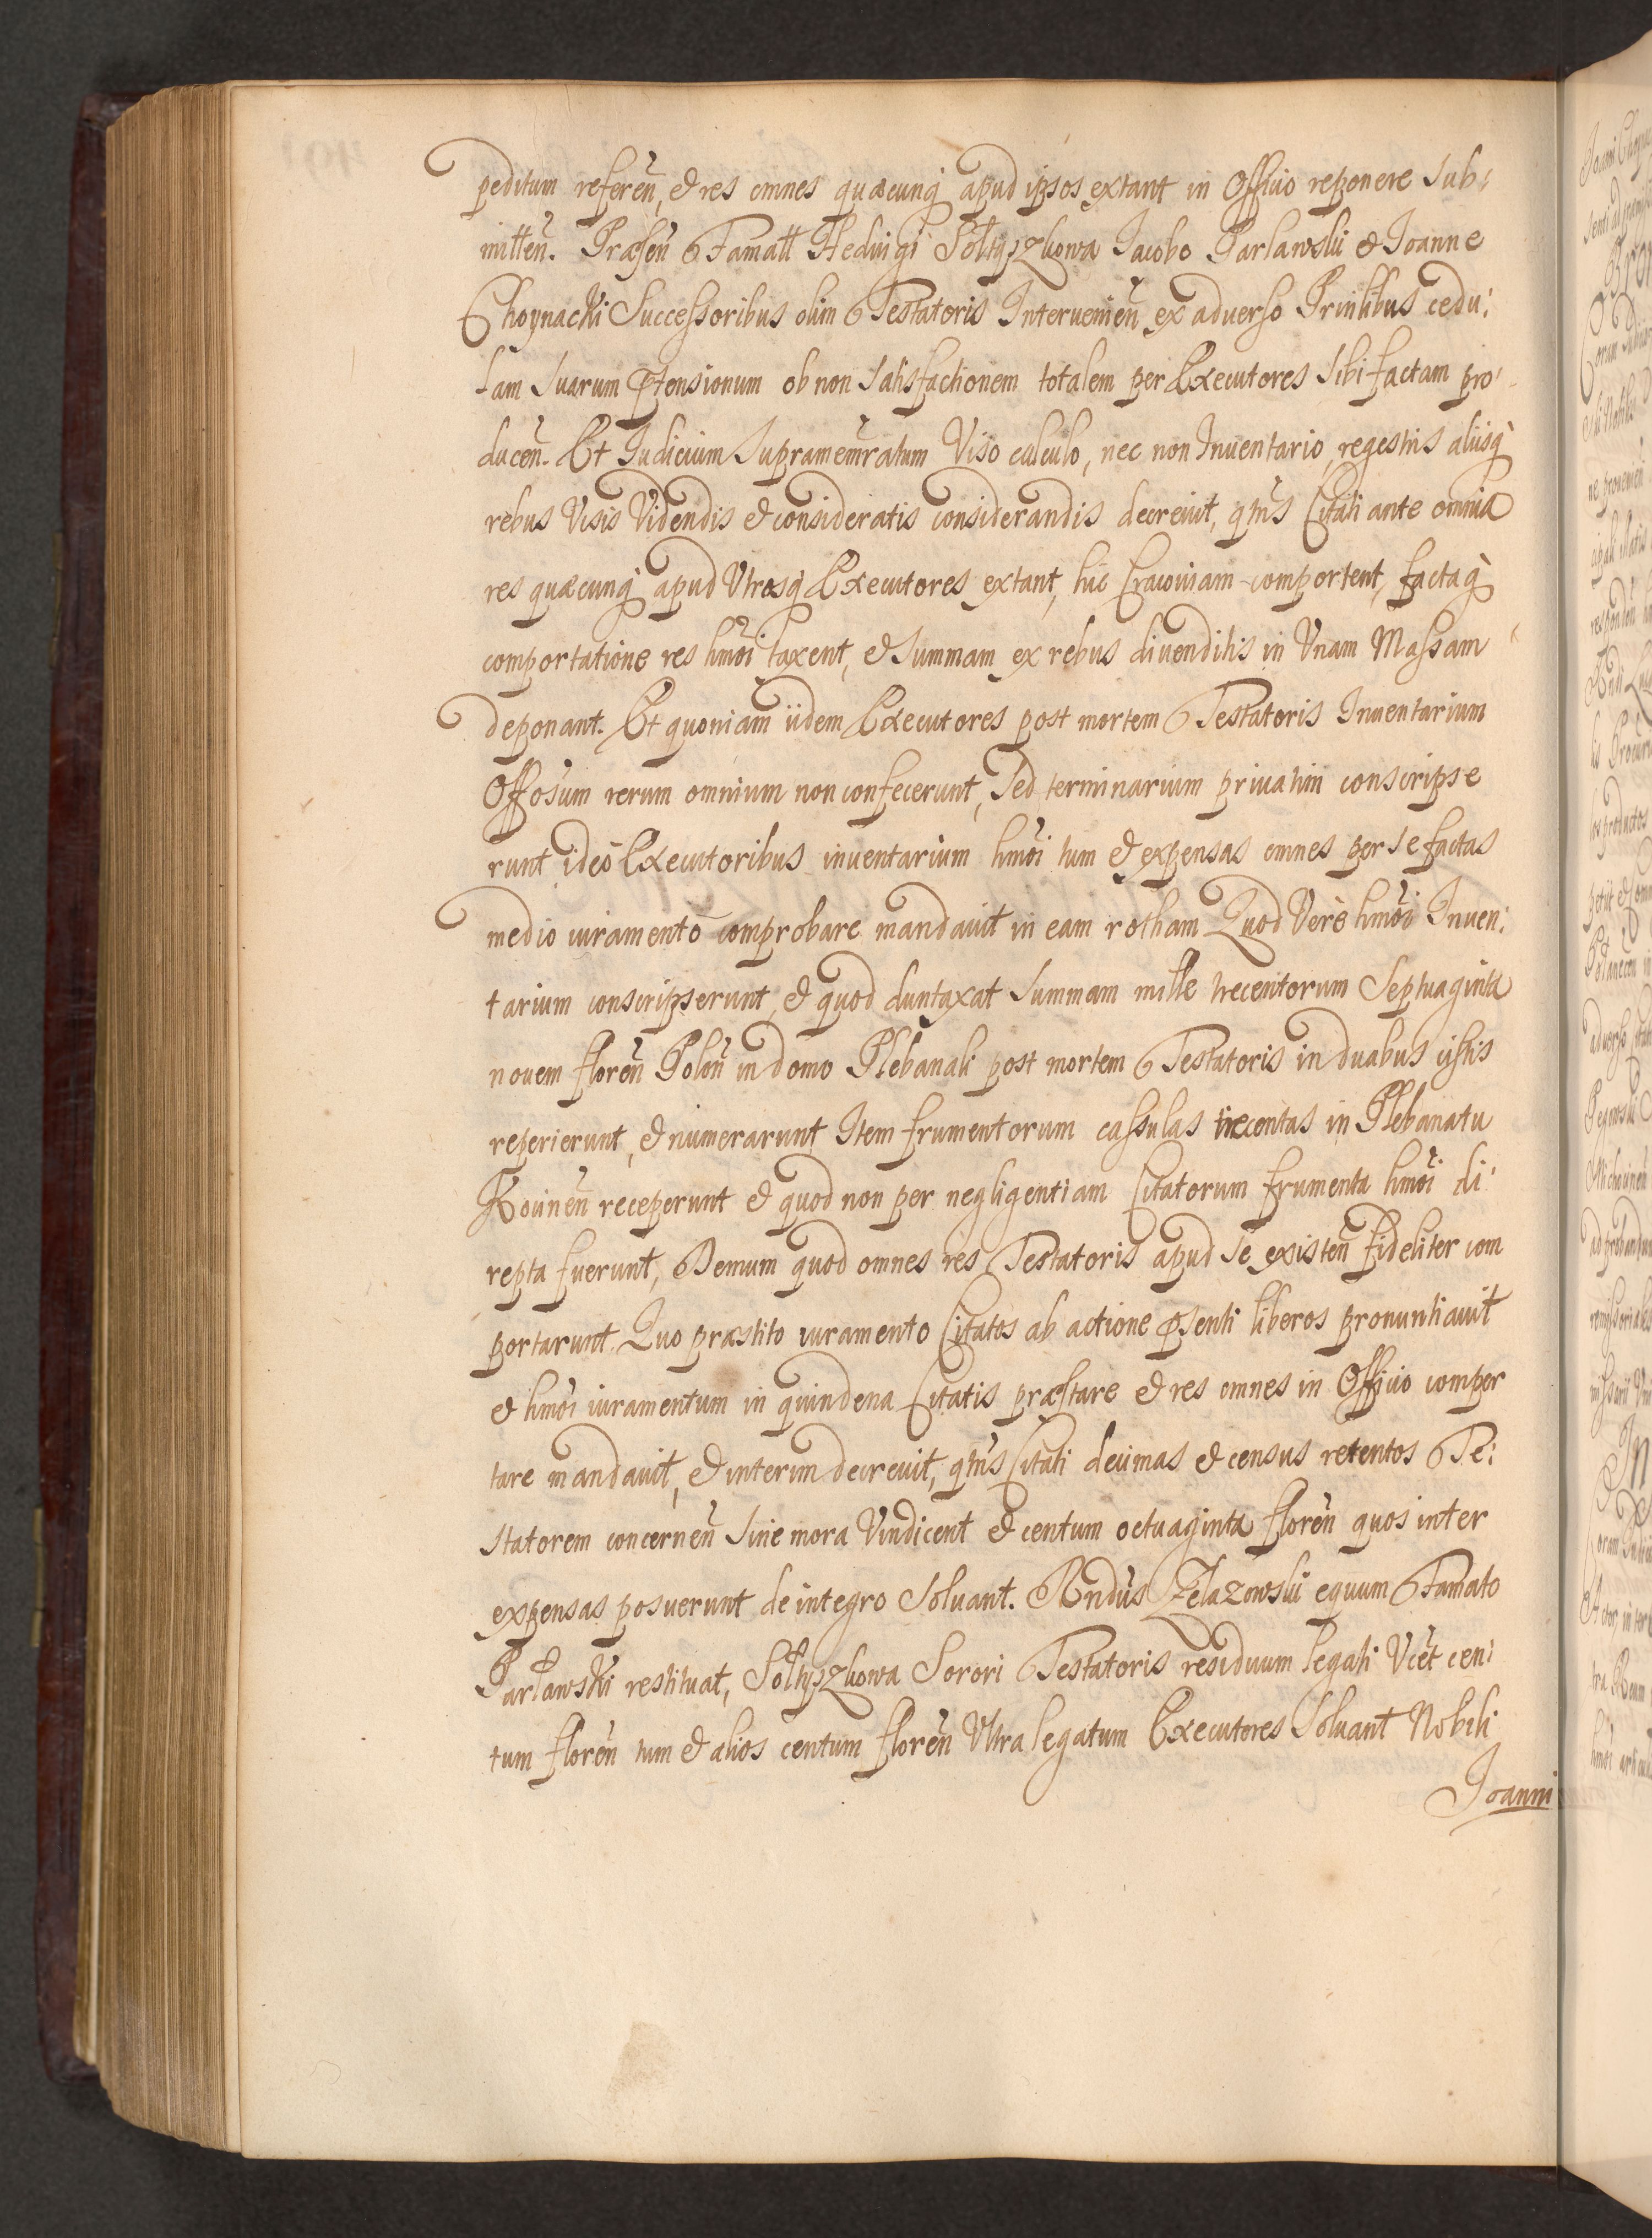 peditum referen̄, et res omnes quæcunq̀ apud ipsos extant in Officio reponere sub:
mitten̄. Præsen̄ Famatt Hedvigi Sołtyszkowa Iacobo Parławski et Ioanne
Choynacki Successoribus olim Testatoris Intervenien̄ ex adverso Prinlibus cedu:
lam suarum p̄tensionum ob non satisfactionem totalem per Executores sibi factam pro:
ducen̄. Et Iudicium supramem̄ratum Viso calculo, nec non Inventario, regestris aliisq̀
rebus Visis Videndis et consideratis considerandis decrevit, qtn̄s Citati ante omnia
res quæcunq̀ apud Utrosq̀ Executores extant, huc Cracoviam comportent, factaq̀
comportatione res hm̄oi taxent, et summam ex rebus divenditis in Unam Massam
deponant. Et quoniam iidem Executores post mortem Testatoris Inventarium
Offosum rerum omnium non confecerunt, sed terminarium privatim conscripse
runt ideo Executoribus inventarium hm̄oi tum et expensas omnes per se factas
medio iuramento comprobare mandavit in eam rotham Quod Vere hm̄oi Inven:
tarium conscripserunt, et quod duntaxat summam mille trecentorum Septuaginta
novem floren̄ Polon̄ in domo Plebanali post mortem Testatoris in duabus cistis
reperierunt, et numerarunt Item frumentorum cassulas trecentas in Plebanatu
Kovinen̄ receperunt et quod non per negligentiam Citatorum frumenta hm̄oi di:
repta fuerunt, Demum quod omnes res Testatoris apud se existen̄ fideliter com
portarunt. Quo præstito iuramento Citatos ab actione p̄senti liberos pronuntiavit
et hm̄oi iuramentum in quindena Citatis præstare et res omnes in Officio compor
tare mandavit, et interim decrevit, qtn̄s Citati decimas et census retentos Te:
statorem concernen̄ sine mora Vindicent et centum octuaginta floren̄ quos inter
expensas posuerunt de integro solvant. Rndus Zelazowski equum Famato
Parławski restituat, Sołtyszkowa Sorori Testatoris residuum legati Vcet cen:
tum floren̄ tum et alios centum floren̄ Ultra legatum Executores solvant Nobili
Ioanni